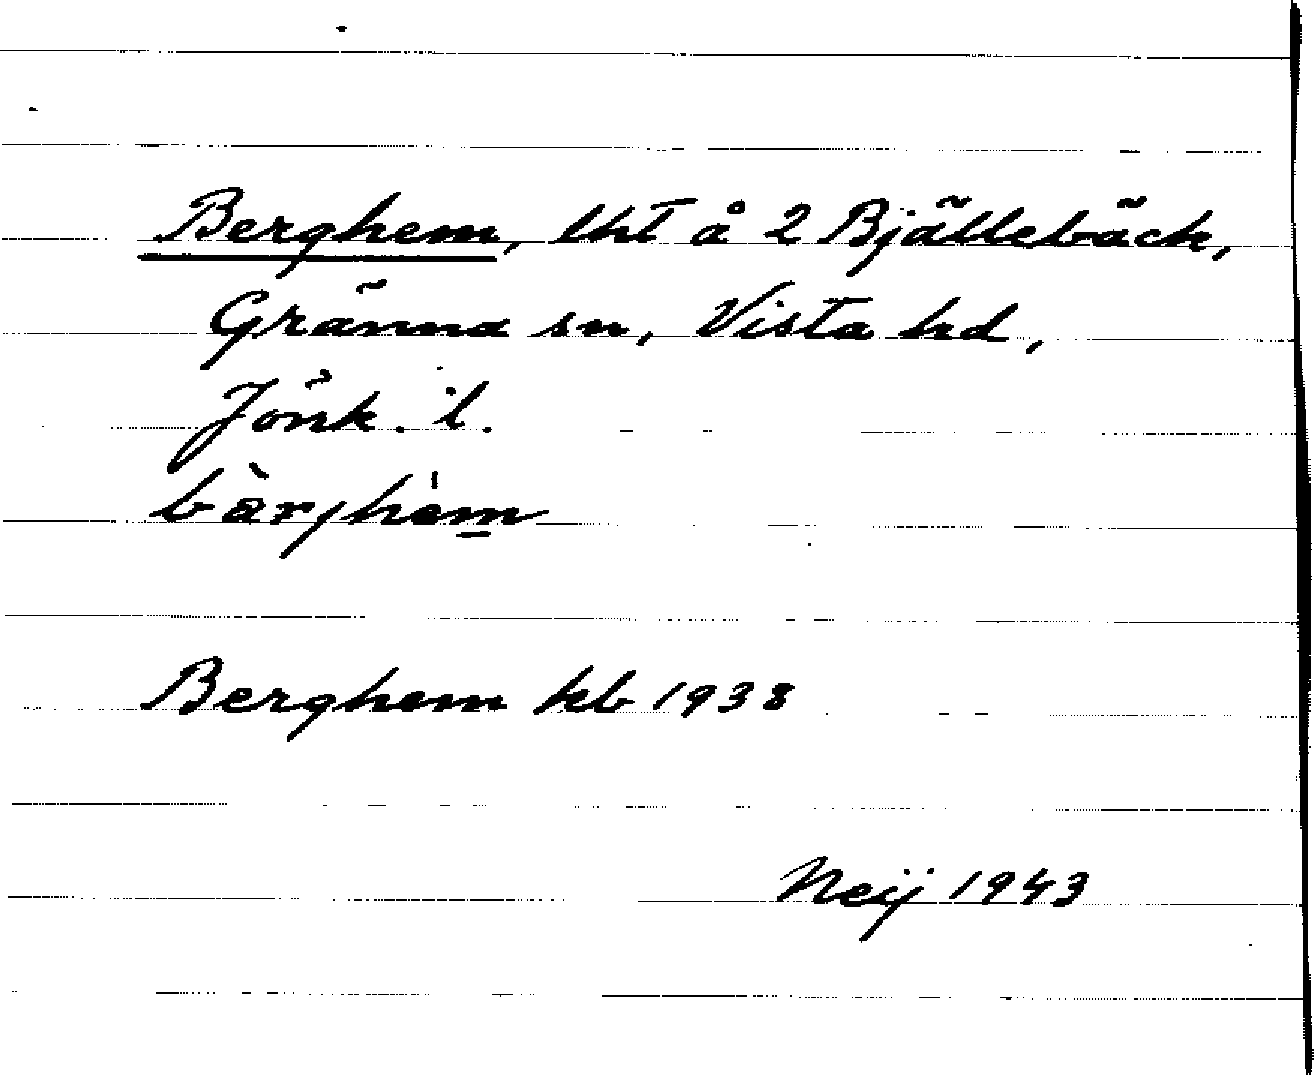 Berghem, lht å 2 Bjällebäck,
Gränna sn, Vista hd,
Jönk. l.
bàrjhem
Berghem kb 1938
Neij 1943